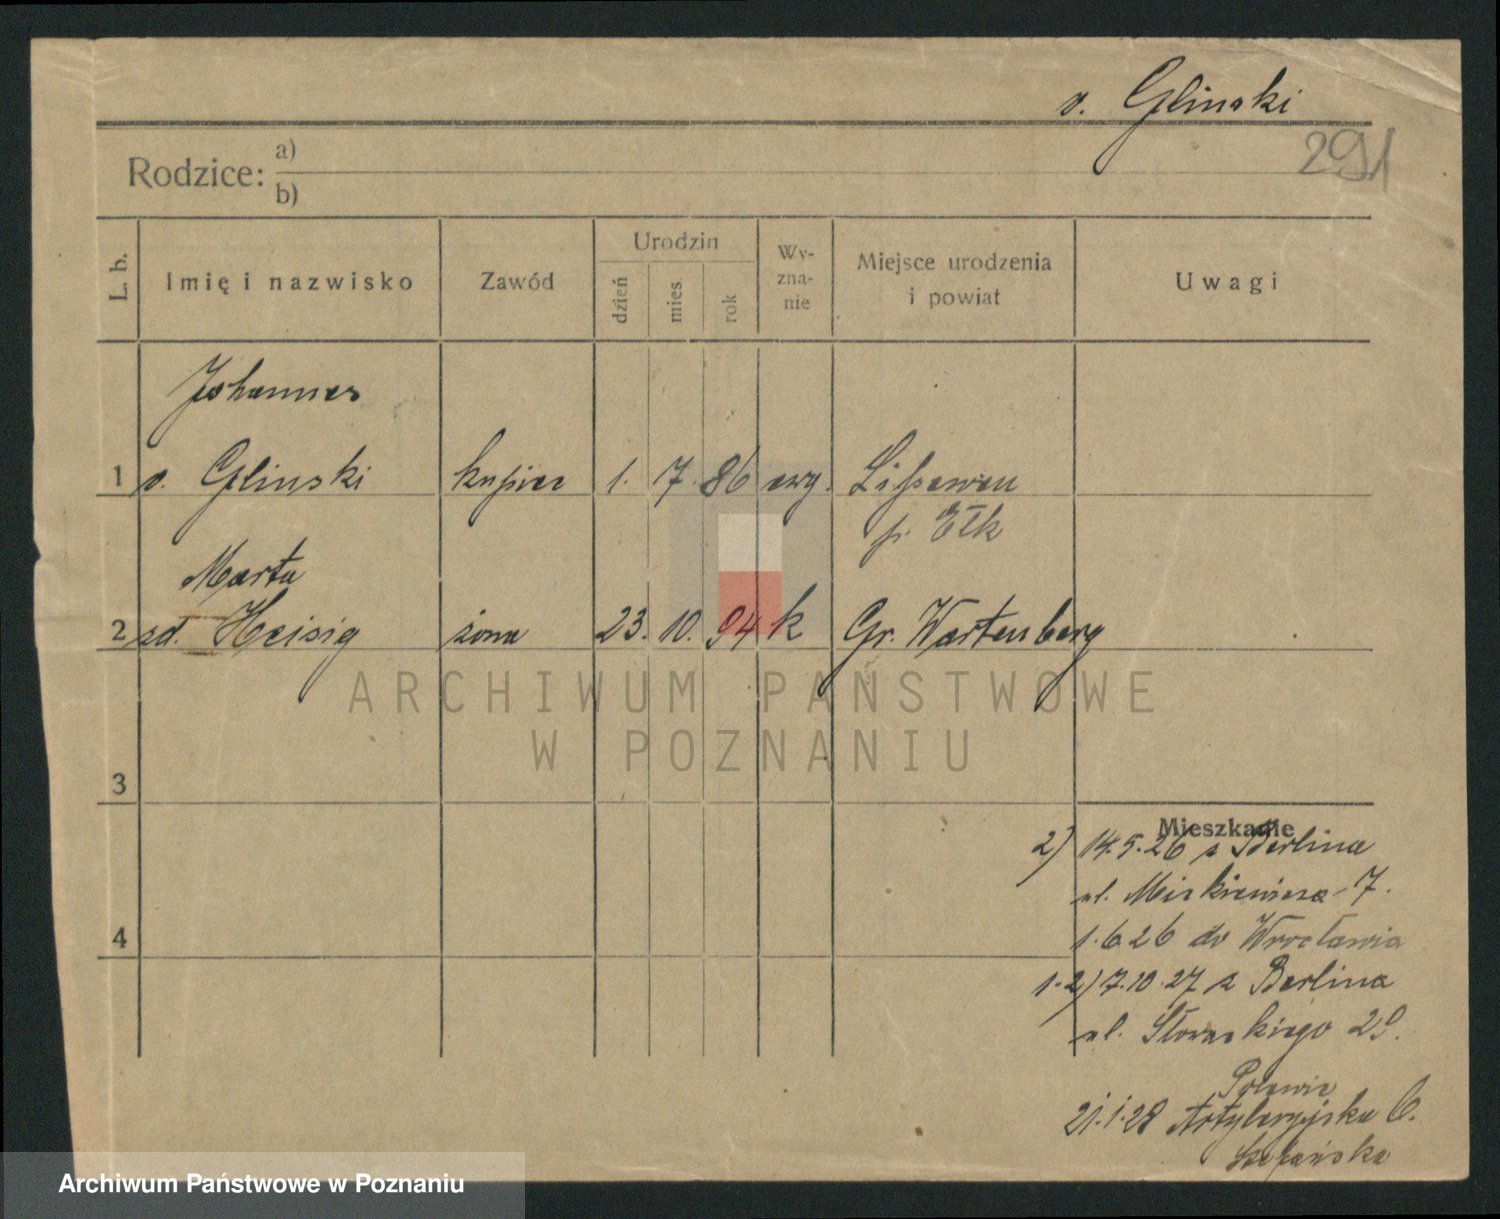 v. Glinski
291
Rodzice: a)
b)
L. b. Imię i nazwisko Zawód Urodzin dzień mies. rok Wy-zna-nie Miejsce urodzenia i powiat Uwagi
Johannes
1 v. Glinski kupiec 1. 7. 86 ewg. Lissewen
p. Ełk
Marta
2 zd. Heisig żona 23. 10. 94 k Gr. Wartenberg
ARCHIWUM PAŃSTWOWE
W POZNANIU
3
Mieszkanie
2) 14.5.26 z Berlina
ul. Mickiewicza 7.
4
1.6.26 do Wrocławia
1-2) 7.10.27 z Berlina
ul. Słowackiego 29.
21.1.28 Artyleryjska 6.
Archiwum Państwowe w Poznaniu